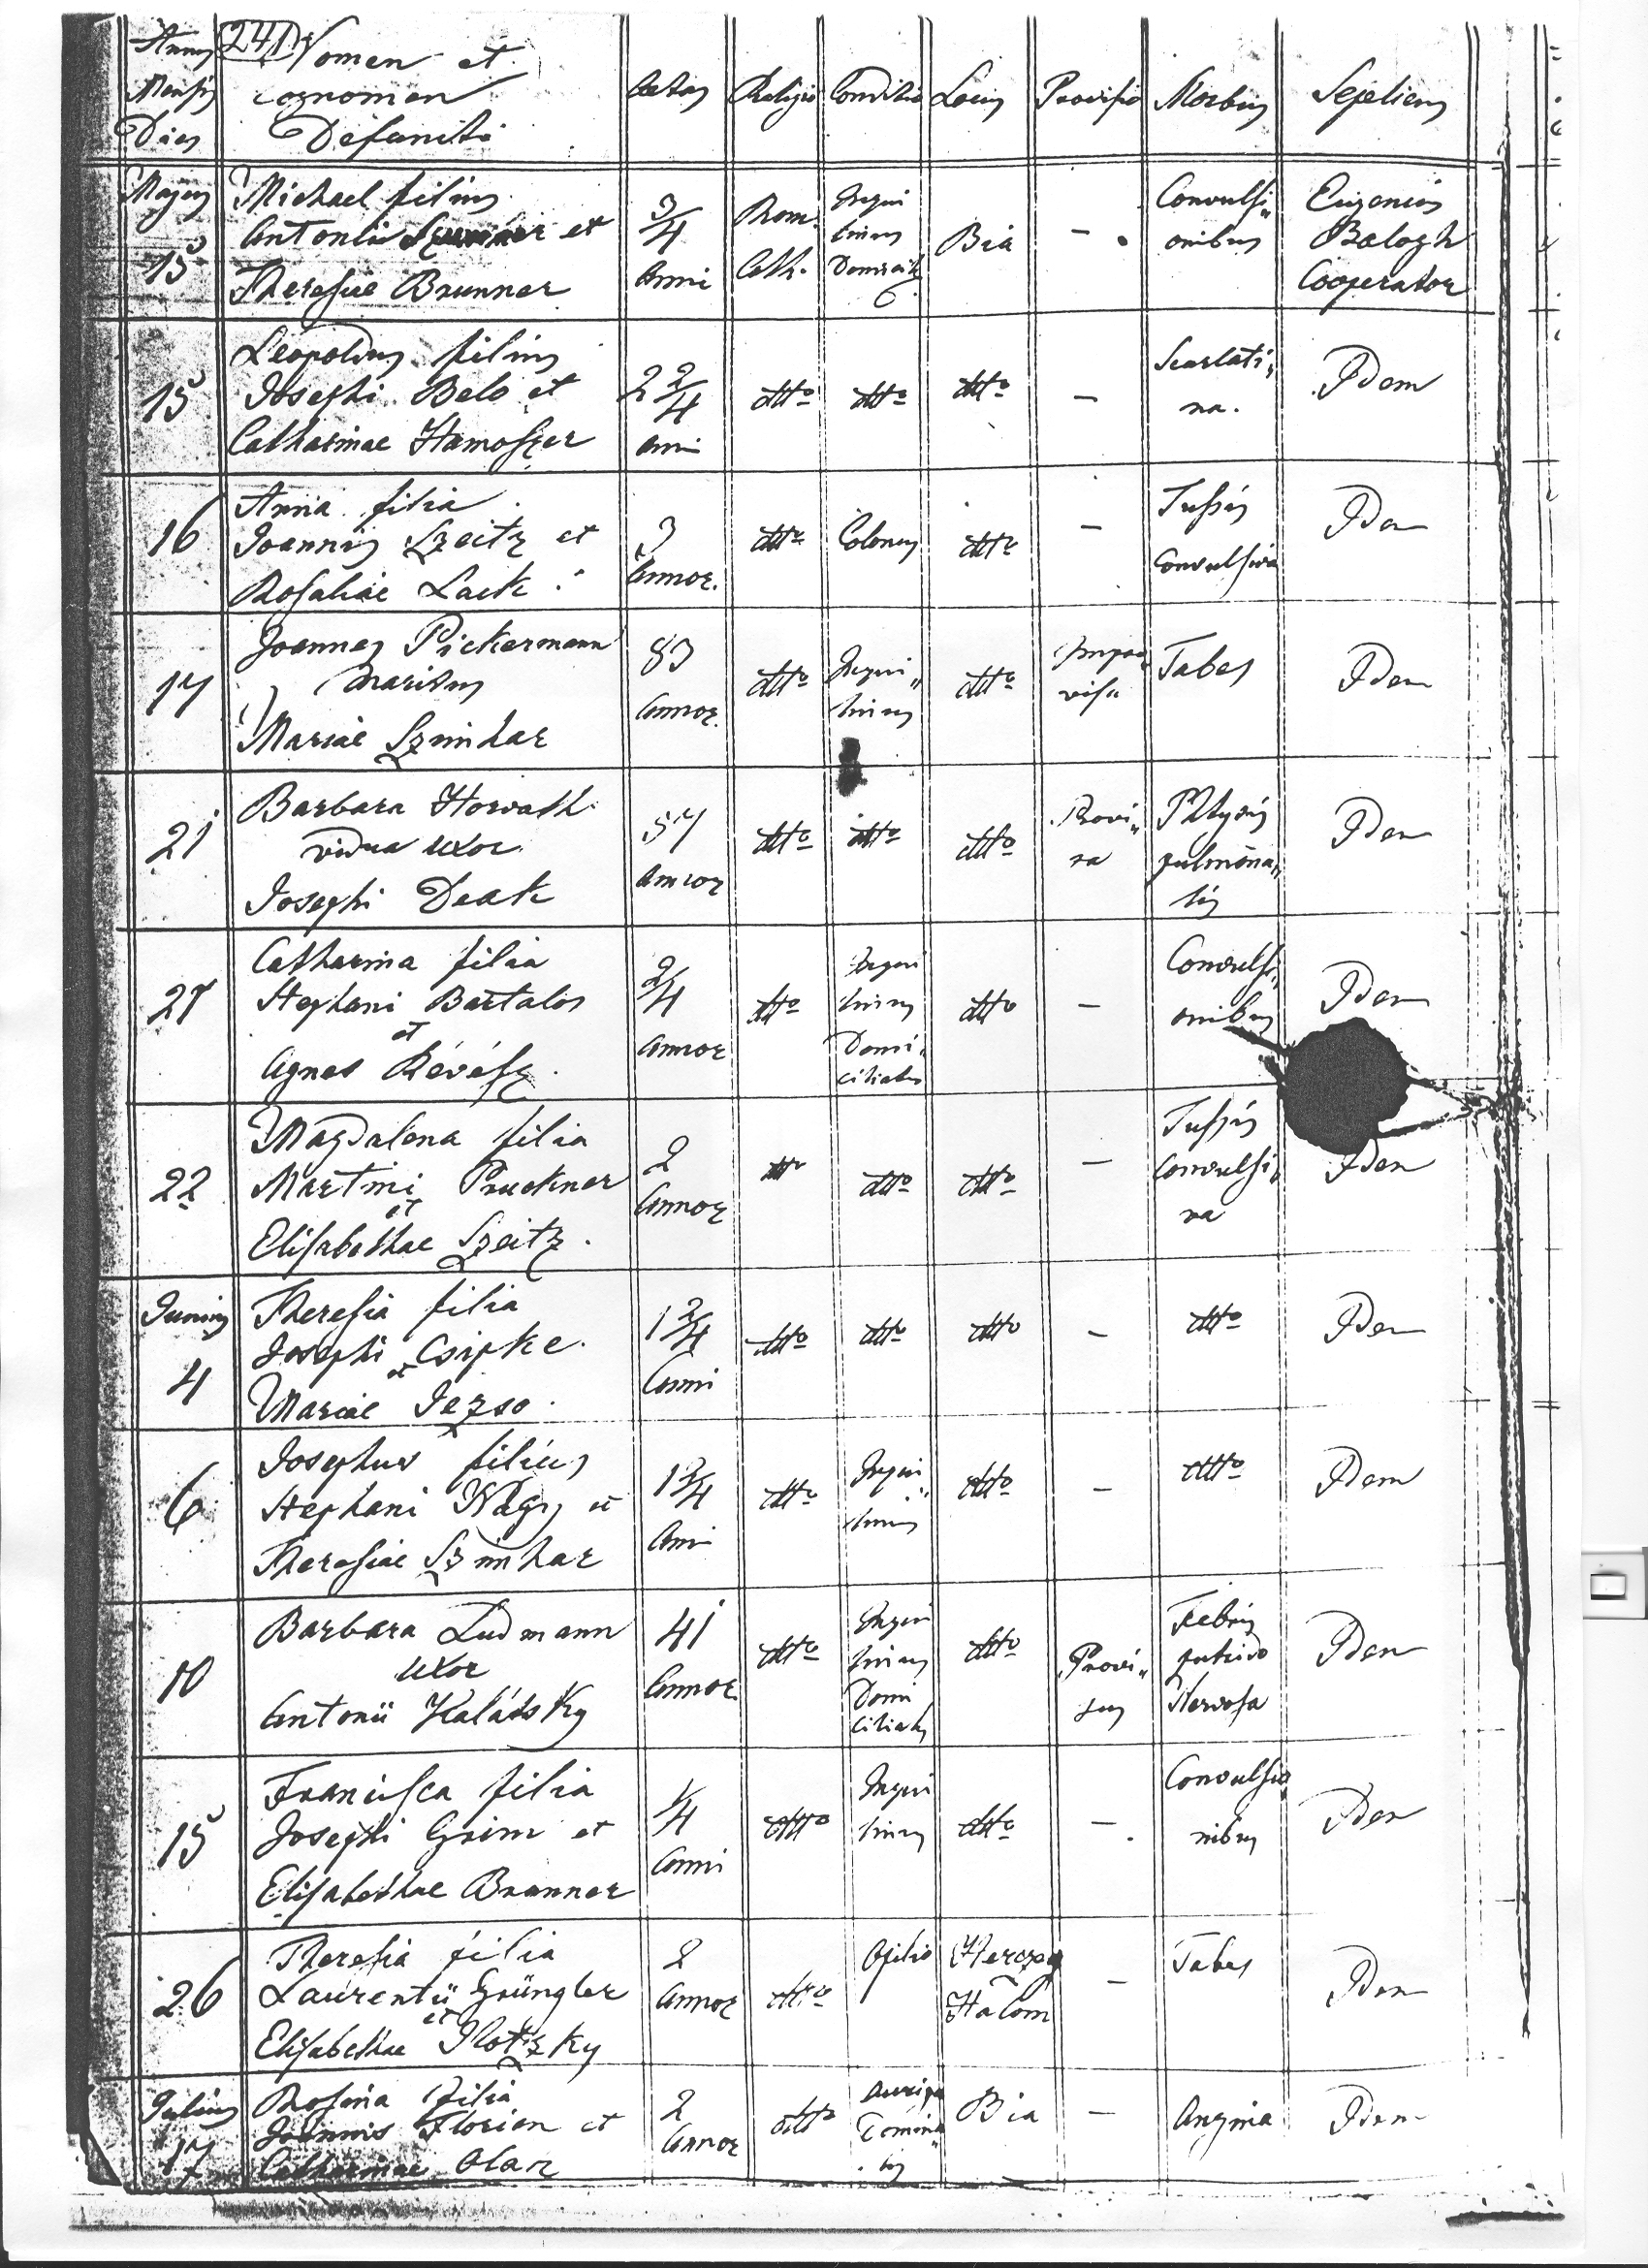 Annus Mensis Dies
241
Nomen et cognomen Defuncti
Aetas
Religio
Conditio
Locus
Provisio
Morbus
Sepeliens
Majus 15
Michael filius
Antonii et
Theresiae Brunner
3/4 Anni
Rom. Cath.
Inqui„ linus Domicil
Bia
-
Convulsi„ onibus
Eugenius Balogh Cooperator
15
Leopoldus filius
Josephi Belo et
Catharinae Hamoszer
2 2/4 Anni
dtto
dtto
dtto
-
Scarlati„ na.
Idem
16
Anna filia
Joannis Szeitz et
Rosaliae Lack
3 Annor.
dtto
Colonus
dtto
-
Tussis Convulsiva
Idem
17
Joannes Pickermann
maritus
Mariae Szimhar
83 Annor.
dtto
Inqui„ linus
dtto
Impro„ vis
Tabes
Idem
21
Barbara Horvath
vidua uxor
Josephi Deak
57 Annor
dtto
dtto
dtto
Provi„ sa
Phtysis pulmona„ lis
Idem
27
Catharina filia
Stephani Bartalos
et
Agnes Révész.
2/4 Annor
dtto
Inqui linus Domi„ ciliatus
dtto
-
Convulsi„ onibus
Idem
22
Magdalena filia
Martini Pruckner
et
Elisabethae Szeitz.
2 Annor
dtto
dtto
dtto
-
Tussis Convulsi„ va
Idem
Junius 4
Theresia filia
Josephi Csipke.
et
Mariae Jezso.
1 2/4 Anni
dtto
dtto
dtto
-
dtto
Idem
6
Josephus filius
Stephani Nagy et
Theresiae Szimhar
1 3/4 Ani
dtto
Inqui„ linus
dtto
-
dtto
Idem
10
Barbara Ludmann
uxor
Antonii Kalátsky
41 Annor.
dtto
Inqui linus Domi ciliatus
dtto
Provi„ sus
Febris putrido Nervosa
Idem
15
Francisca filia
Josephi Grim et
Elisabethae Brunner
1/4 Anni
dtto
Inqui linus
dtto
-
Convulsio„ nibus
Idem
26
Theresia filia
Laurentii Grüngler
et
Elisabethae Plotzky
2 Annor
dtto
Opilio
Herczog Halom
-
Tabes
Idem
Julius 17
Rosina filia
Joannis Florian et
Catharinae Olar
2 Annor
dtto
Auriga Domina„ lis
Bia
-
Angina
Idem